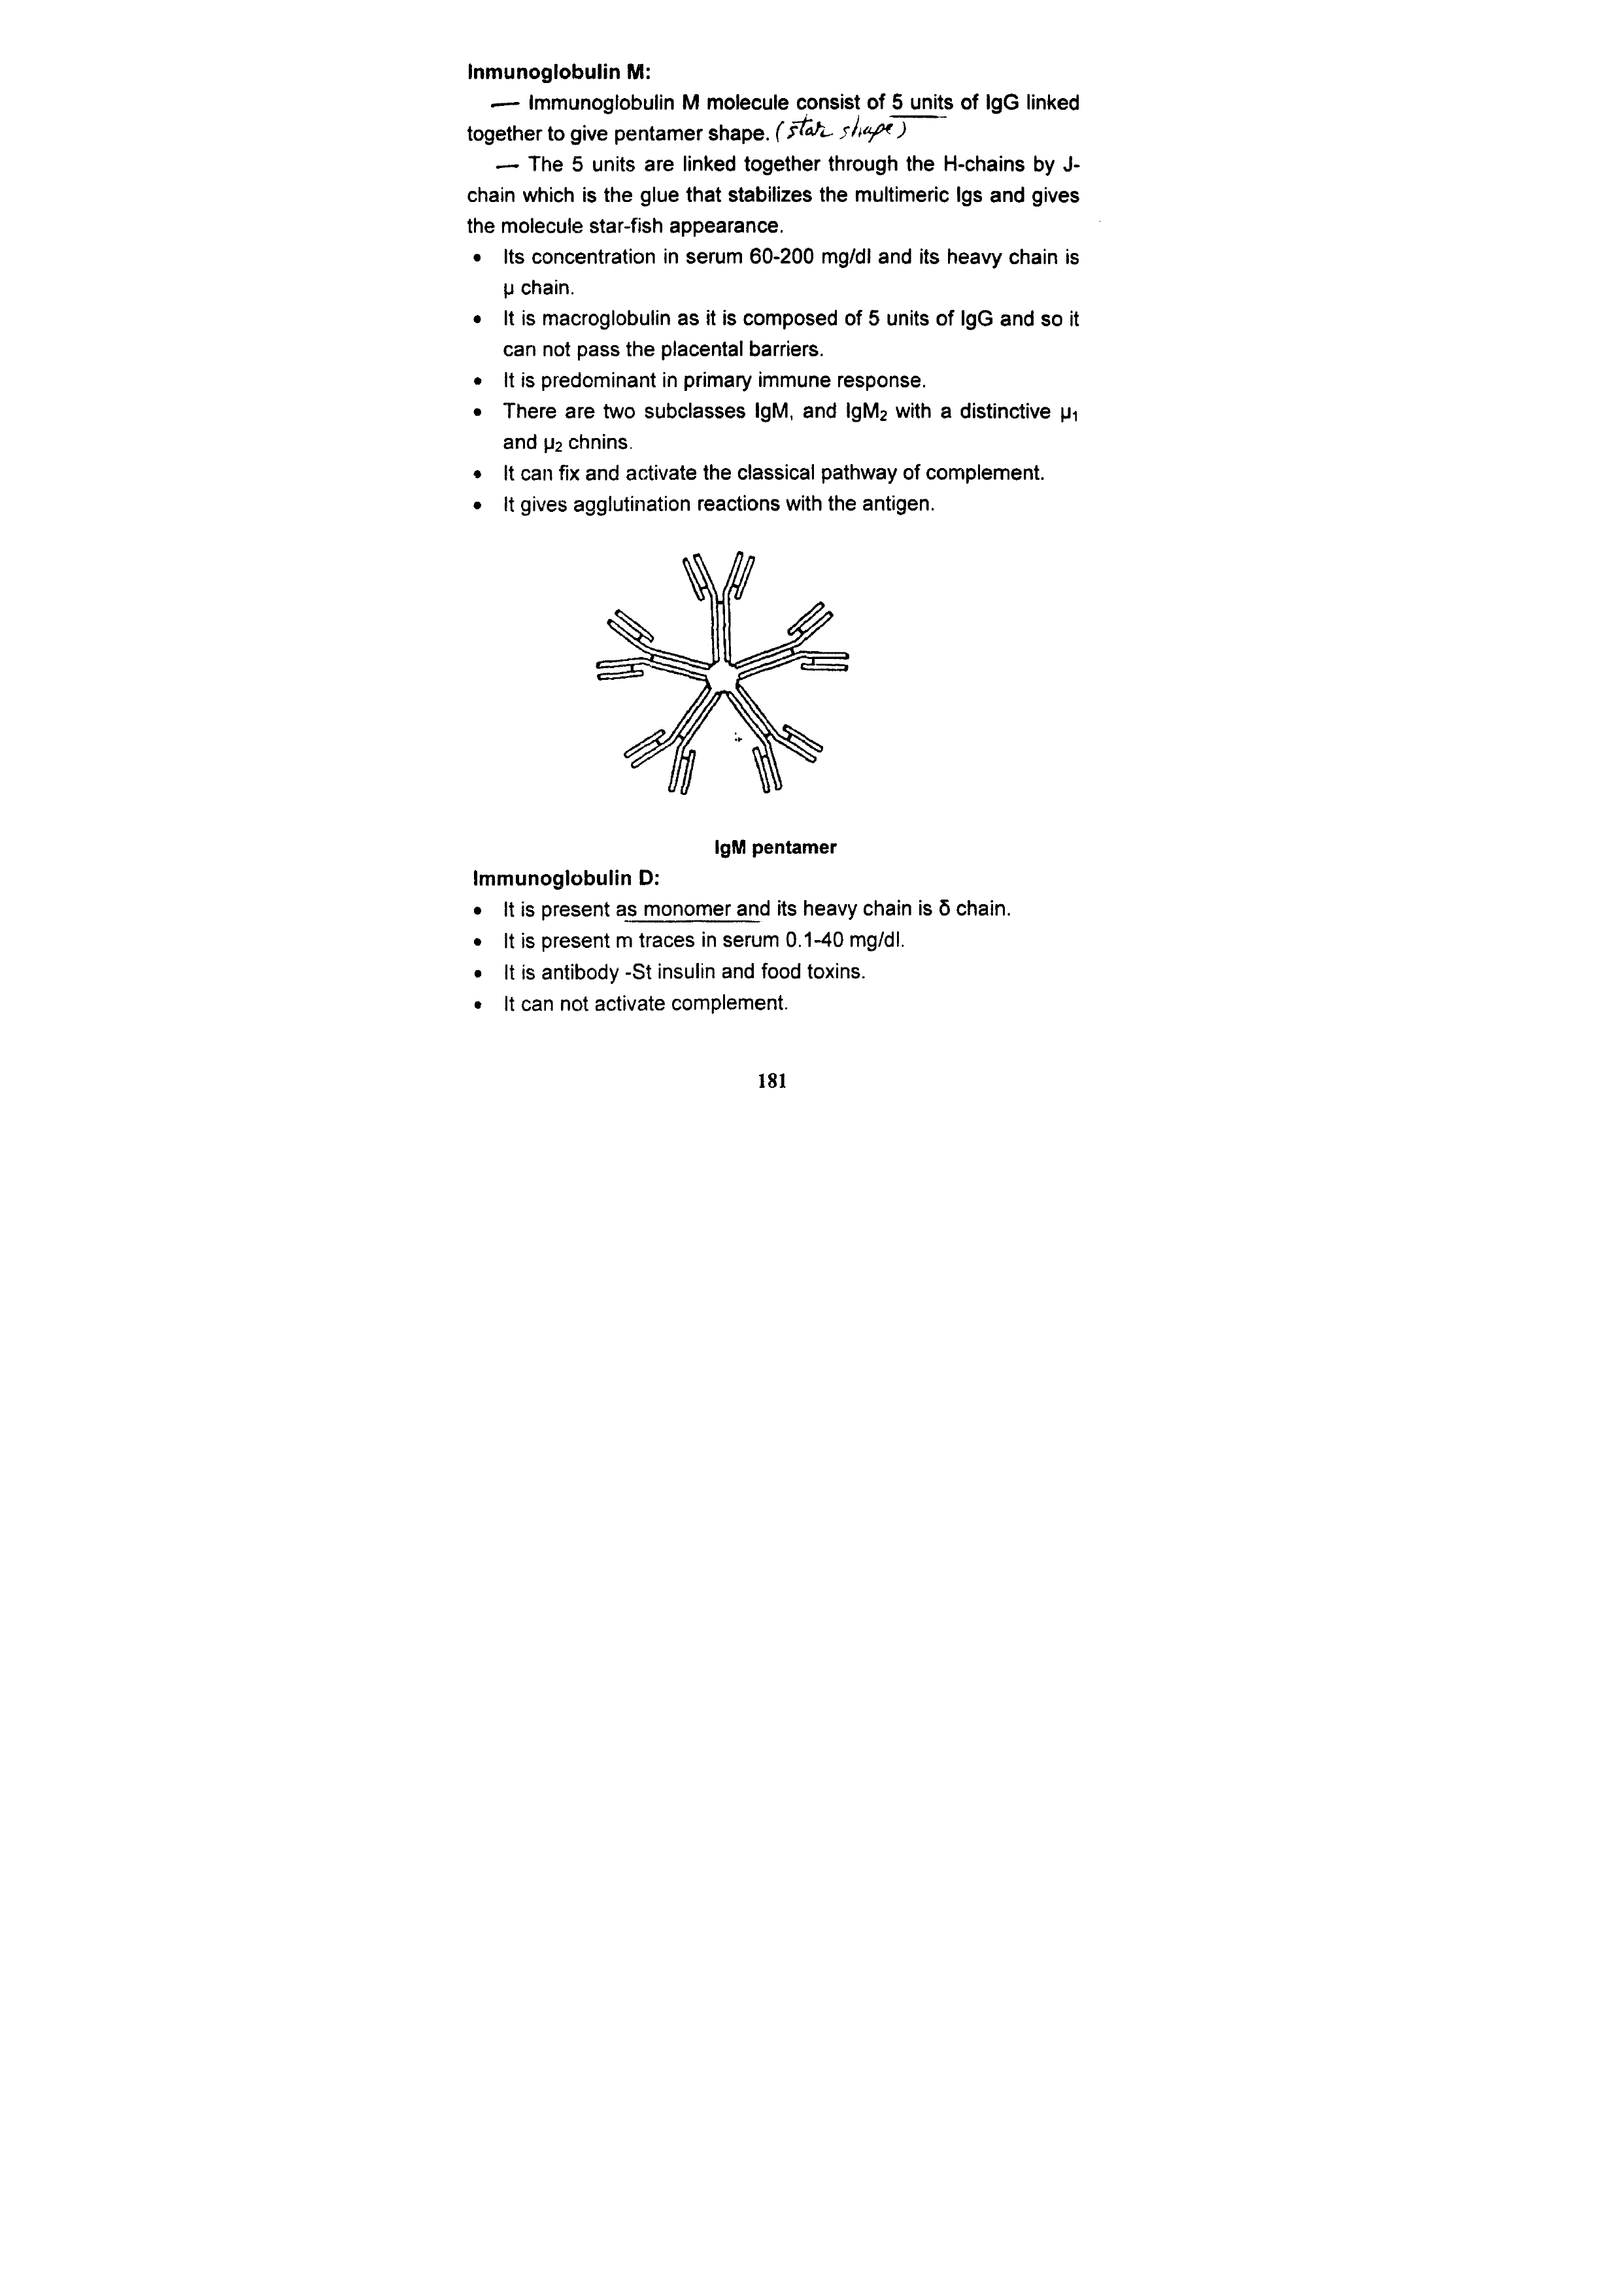 Inmunoglobulin M:
— Immunoglobulin M molecule consist of 5 units of IgG linked
together to give pentamer shape. (star shape)
— The 5 units are linked together through the H-chains by J-
chain which is the glue that stabilizes the multimeric Igs and gives
the molecule star-fish appearance.
• Its concentration in serum 60-200 mg/dl and its heavy chain is
µ chain.
• It is macroglobulin as it is composed of 5 units of IgG and so it
can not pass the placental barriers.
• It is predominant in primary immune response.
• There are two subclasses IgM, and IgM₂ with a distinctive µ₁
and µ₂ chnins.
• It can fix and activate the classical pathway of complement.
• It gives agglutination reactions with the antigen.
IgM pentamer
Immunoglobulin D:
• It is present as monomer and its heavy chain is δ chain.
• It is present m traces in serum 0.1-40 mg/dl.
• It is antibody -St insulin and food toxins.
• It can not activate complement.
181